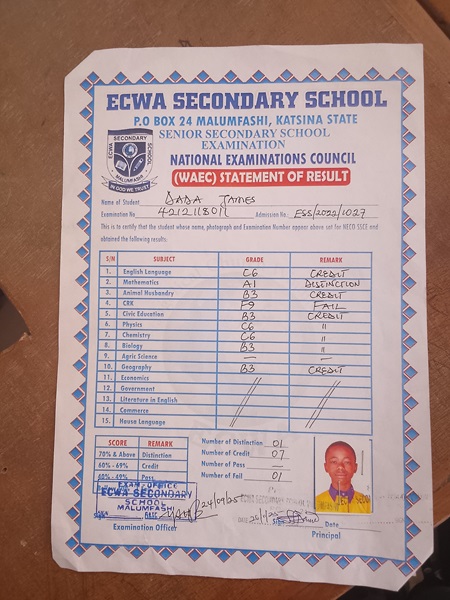 ECWA SECONDARY SCHOOL
P.O BOX 24 MALUMFASHI, KATSINA STATE
SENIOR SECONDARY SCHOOL
EXAMINATION
NATIONAL EXAMINATIONS COUNCIL
(WAEC) STATEMENT OF RESULT
ECWA SECONDARY SCHOOL
MALUMFASHI
IN GOD WE TRUST
Name of Student DADA JAMES
Examination No 4212118011 Admission No. ESS/2022/1027
This is to certify that the student whose name, photograph and Examination Number appear above sat for NECO SSCE and
obtained the following results.
S/N SUBJECT GRADE REMARK
1. English Language C6 CREDIT
2. Mathematics A1 DISTINCTION
3. Animal Husbandry B3 CREDIT
4. CRK F9 FAIL
5. Civic Education B3 CREDIT
6. Physics C6 "
7. Chemistry C6 "
8. Biology B3 "
9. Agric Science — —
10. Geography B3 CREDIT
11. Economics //
12. Government //
13. Literature in English //
14. Commerce //
15. Hausa Language //
SCORE REMARK
70% & Above Distinction
60% - 69% Credit
40% - 49% Pass
Number of Distinction 01
Number of Credit 07
Number of Pass —
Number of Fail 01
EXAM. OFFICE
ECWA SECONDARY
SCHOOL
MALUMFASHI
24/09/25
ECWA SECONDARY
DATE
Examination Officer
Date
Principal